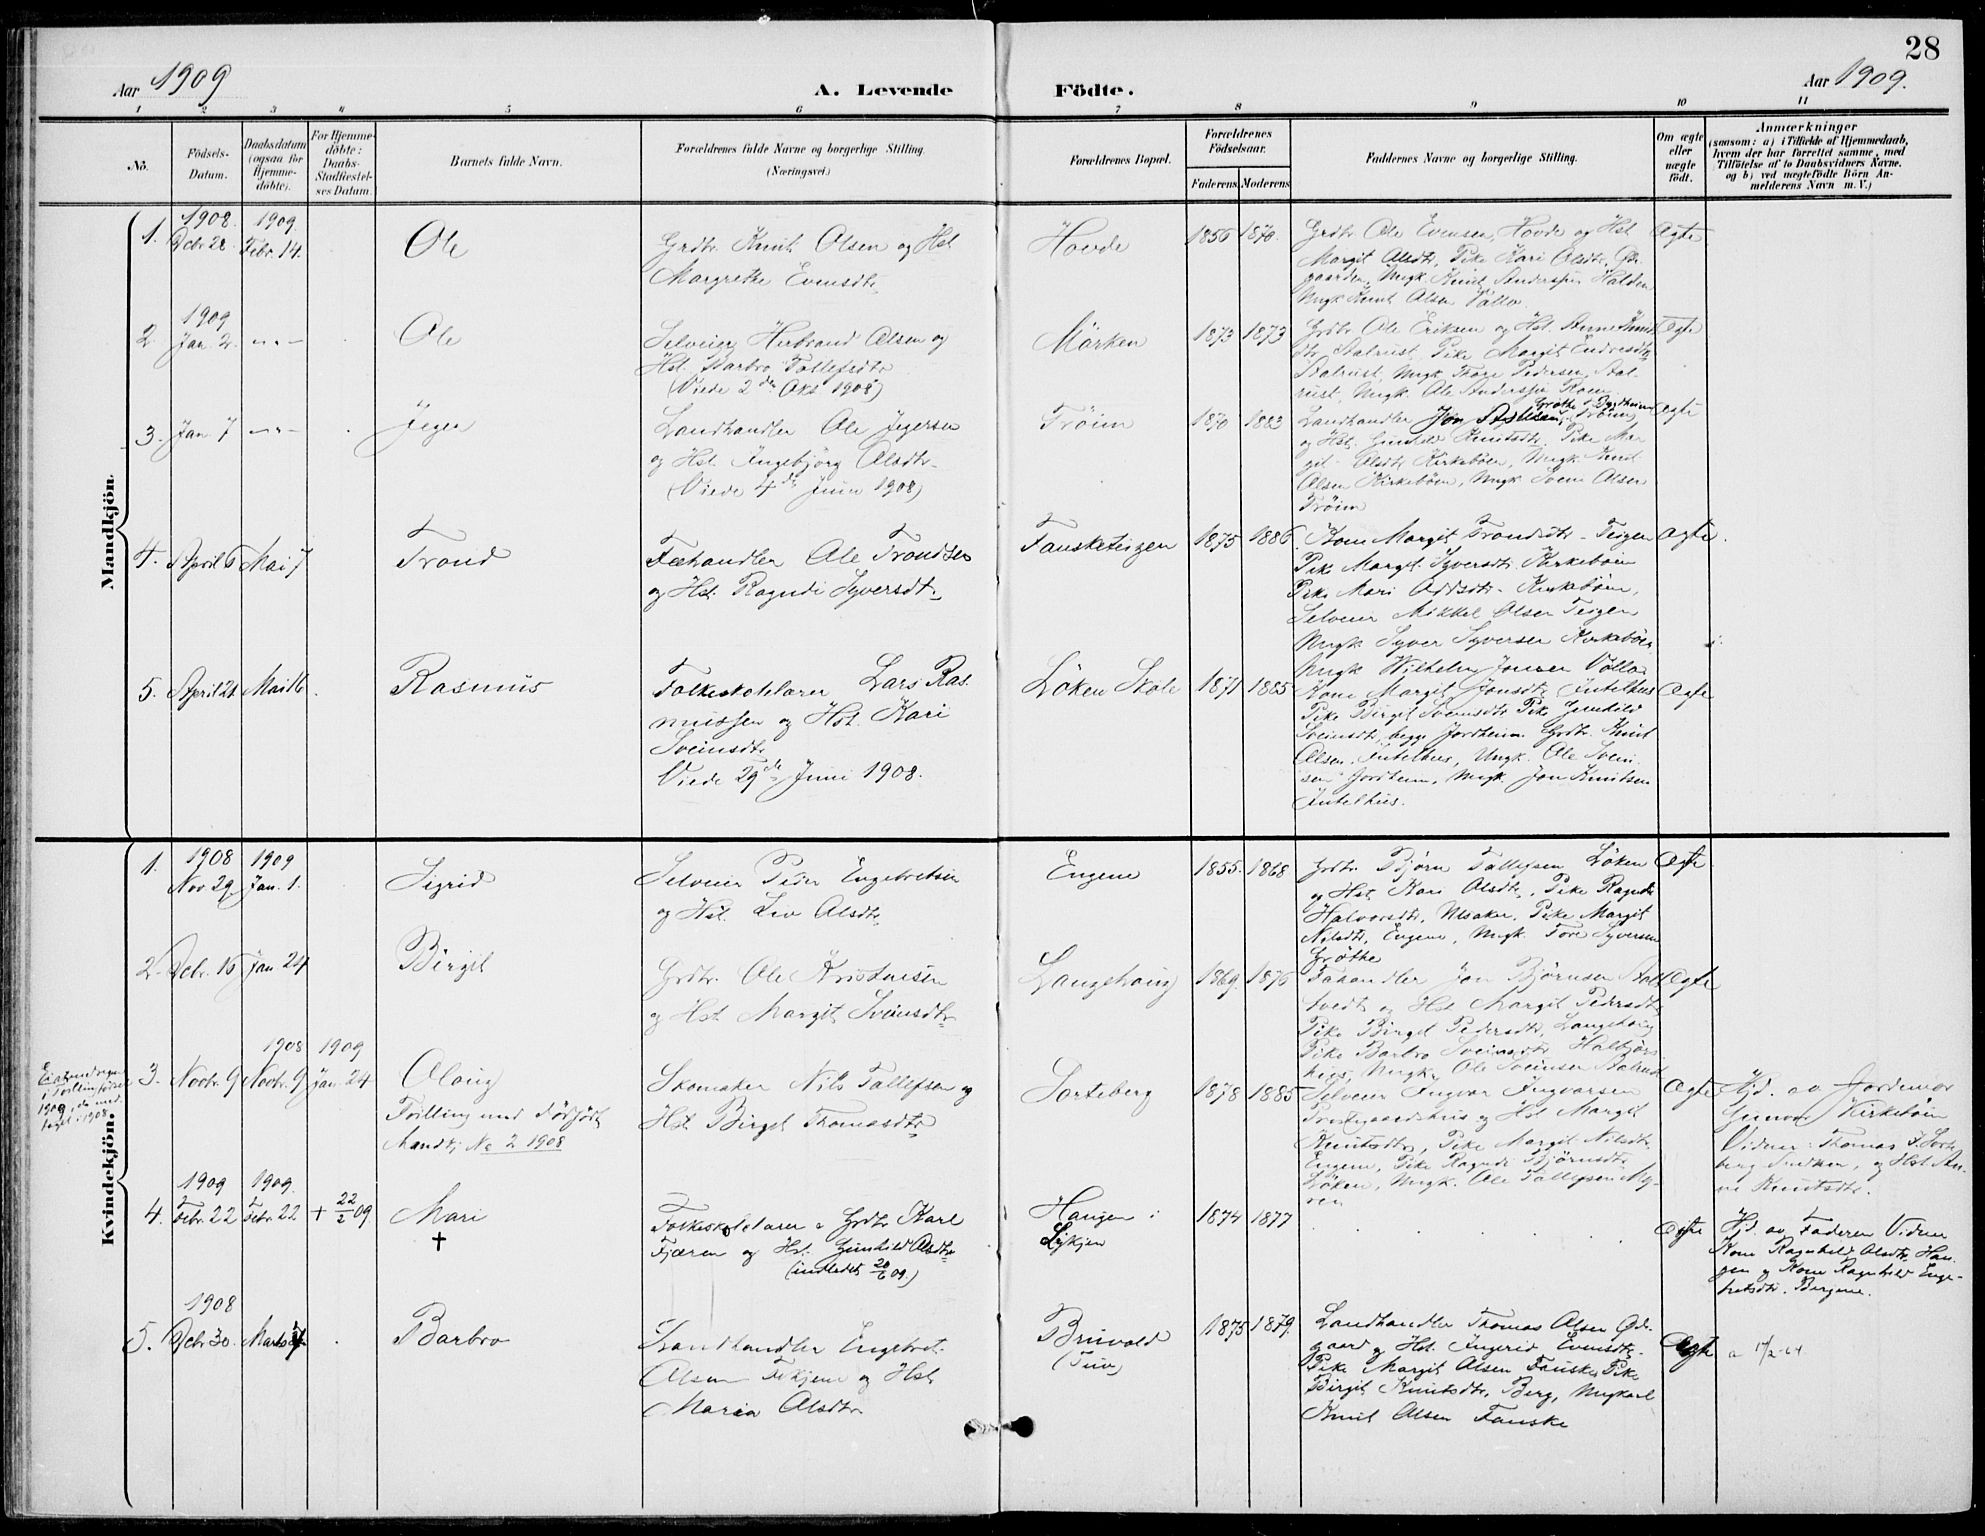 28
Aar 1909
A. Levende
Födte.
Aar 1909.
1 2 3 4 5 6 7 8 9 10 11
No.
Födsels-
Datum.
Daabsdatum
(ogsaa for
Hjemme-
döbte).
For Hjemme-
döbte:
Daabs-
Stadfæstel-
ses Datum.
Barnets fulde Navn.
Forældrenes fulde Navne og borgerlige Stilling
(Næringsvei)
Forældrenes Bopæl.
Forældrenes
Födselsaar.
Faderens Moderens
Faddernes Navne og borgerlige Stilling.
Om ægte
eller
uægte
födt.
Anmærkninger
(saasom: a) i Tilfælde af Hjemmedaab,
hvem der har forrettet samme, med
Tilföielse af to Daabsvidners Navne,
og b) ved uægtefödte Börn An-
melderens Navn m. V.)
Mandkjön.
1.
1908
Dcbr 28.
1909
Febr. 14.
Ole
Grdbr. Knut Olsen og Hst.
Margrethe Evensdtr.
Hovde
1856 1870.
Grdbr. Ole Evensen, Hovde og Hst.
Margit Olsdtr, Pike Kari Olsdtr,
Ungk. Knut Olsen
Ægte
2.
1909
Jan. 2.
- " -
Ole
Selveier Herbrand Olsen og
Hst. Barbro Tollefsdtr.
(Viede 2den Okt 1908)
Mörken
1873 1873
Grdbr. Ole Eriksen og Hst. Anne Knuts
dtr. Stalrust, Pike Margit Endresdtr
Stalrust, Ungk. Thore Pedersen Stal-
rust, Ungk. Ole
Ægte
3.
Jan. 7
- " -
Jeger
Landhandler Ole Jegersen
og Hst. Ingebjörg Olsdtr.
(Viede 4de Juni 1908)
Tröim
1870 1883
Landhandler Jon
og Hst. Gunhild Knutsdtr. Pike Mar-
git Olsdtr Kirkeböen, Ungk. Knut
Olsen Kirkeböen, Ungk. Svein Olsen
Tröim
Ægte
4.
April 6
Mai 7
Trond
Fæhandler Ole Trondsen
og Hst. Ragndi Syversdtr.
Fausketeigen
1875 1886
Kone Margit Trondsdtr. Teigen
Pike Margit Syversdtr Kirkebøen
Pike Mari Kirkebøen,
Selveier Mikkel Olsen Teigen
Ungk Syver Syversen Kirkebøen
Ungk Wilhelm Jonsen
Ægte.
5.
April 21
Mai 16
Rasmus
Folkeskolelærer Lars Ras-
mussen og Hst. Kari
Sveinsdtr.
Viede 29de Juni 1908.
Löken Skole
1871 1885
Kone Margit Jonsdtr. Intelhus
Pike Birgit Sveinsdtr Pike Gunhild
Sveinsdtr, begge Jordheim. Grdbr. Knut
Olsen Intelhus, Ungk. Ole Svein-
sen Jordheim, Ungk. Jon Knutsen
Intelhus.
Ægte
Kvindekjön.
1.
1908
Nov 29
1909
Jan. 1.
Sigrid
Selveier Peder Engebretsen
og Hst. Liv Olsdtr.
Engene
1855. 1868
Grdbr. Bjørn Tollefsen Löken
og Hst. Kari Olsdtr, Pike Ragndi
Halvorsdtr. Ulsaker. Pike Margit
Nilsdtr, Engene, Ungk. Tore Syversen
Grøthe
Ægte
2.
Dcbr. 16
Jan 24
Birgit
Grdbr. Ole Kristensen
og Hst. Margit Sveinsdtr.
Langehaug
1869. 1876
Fæhandler Jon Björnsen
og Hst Margit Pedersdtr
Pike Birgit Pedersdtr, Langehaug
Pike Barbro Sveinsdtr,
Ungk. Ole Sveinsen
Ægte
3.
1908
Novbr. 9
Novbr. 9
1909
Jan. 24
Olaug
Tvilling med dödfödt
Mandkj. No 2 1908
Skomaker Nils Tollefsen og
Hst. Birgit Thomasdtr
Sorteberg
1878 1885
Selveier Ingvar Ingvarsen
Prestegaardshus og Hst. Margit
Knutsdtr, Pike Margit Nilsdtr.
Engene, Pike Ragndi Björnsdtr.
Löken, Ungk. Ole Tollefsen My-
ren
Ægte
Hjd. av Jordemor
Kirkebøen
Vidner: Thomas
og Hst. An-
ne Knutsdtr.
4.
1909
Febr. 22
1909
Febr. 22
+ 22/2 09
Mari
+
Folkeskolelærer & Grdbr Karl
Fjæren og Hst. Gunhild Olsdtr
(indledet 20/6 09.)
Haugen i
Lykkjen
1874 1877
Ægte
Hjd. av Faderen Vidner
Kone Ragnhild Olsdtr Hau-
gen og Kone Ragnhild Enge-
bretsdtr. Bergene.
5.
1908
Dcbr 30.
Marts
Barbro
Landhandler Engebret
Olsen og Hst
Maria Olsdtr.
Brüvold
(Tuv)
1875 1879.
Landhandler Thomas Olsen Øde-
gaard og Hst. Ingerid Evensdtr.
Pike Margit Olsen Fauske, Pike
Birgit Knutsdtr. Berg, Ungkarl
Knut Olsen Fauske
Ægte